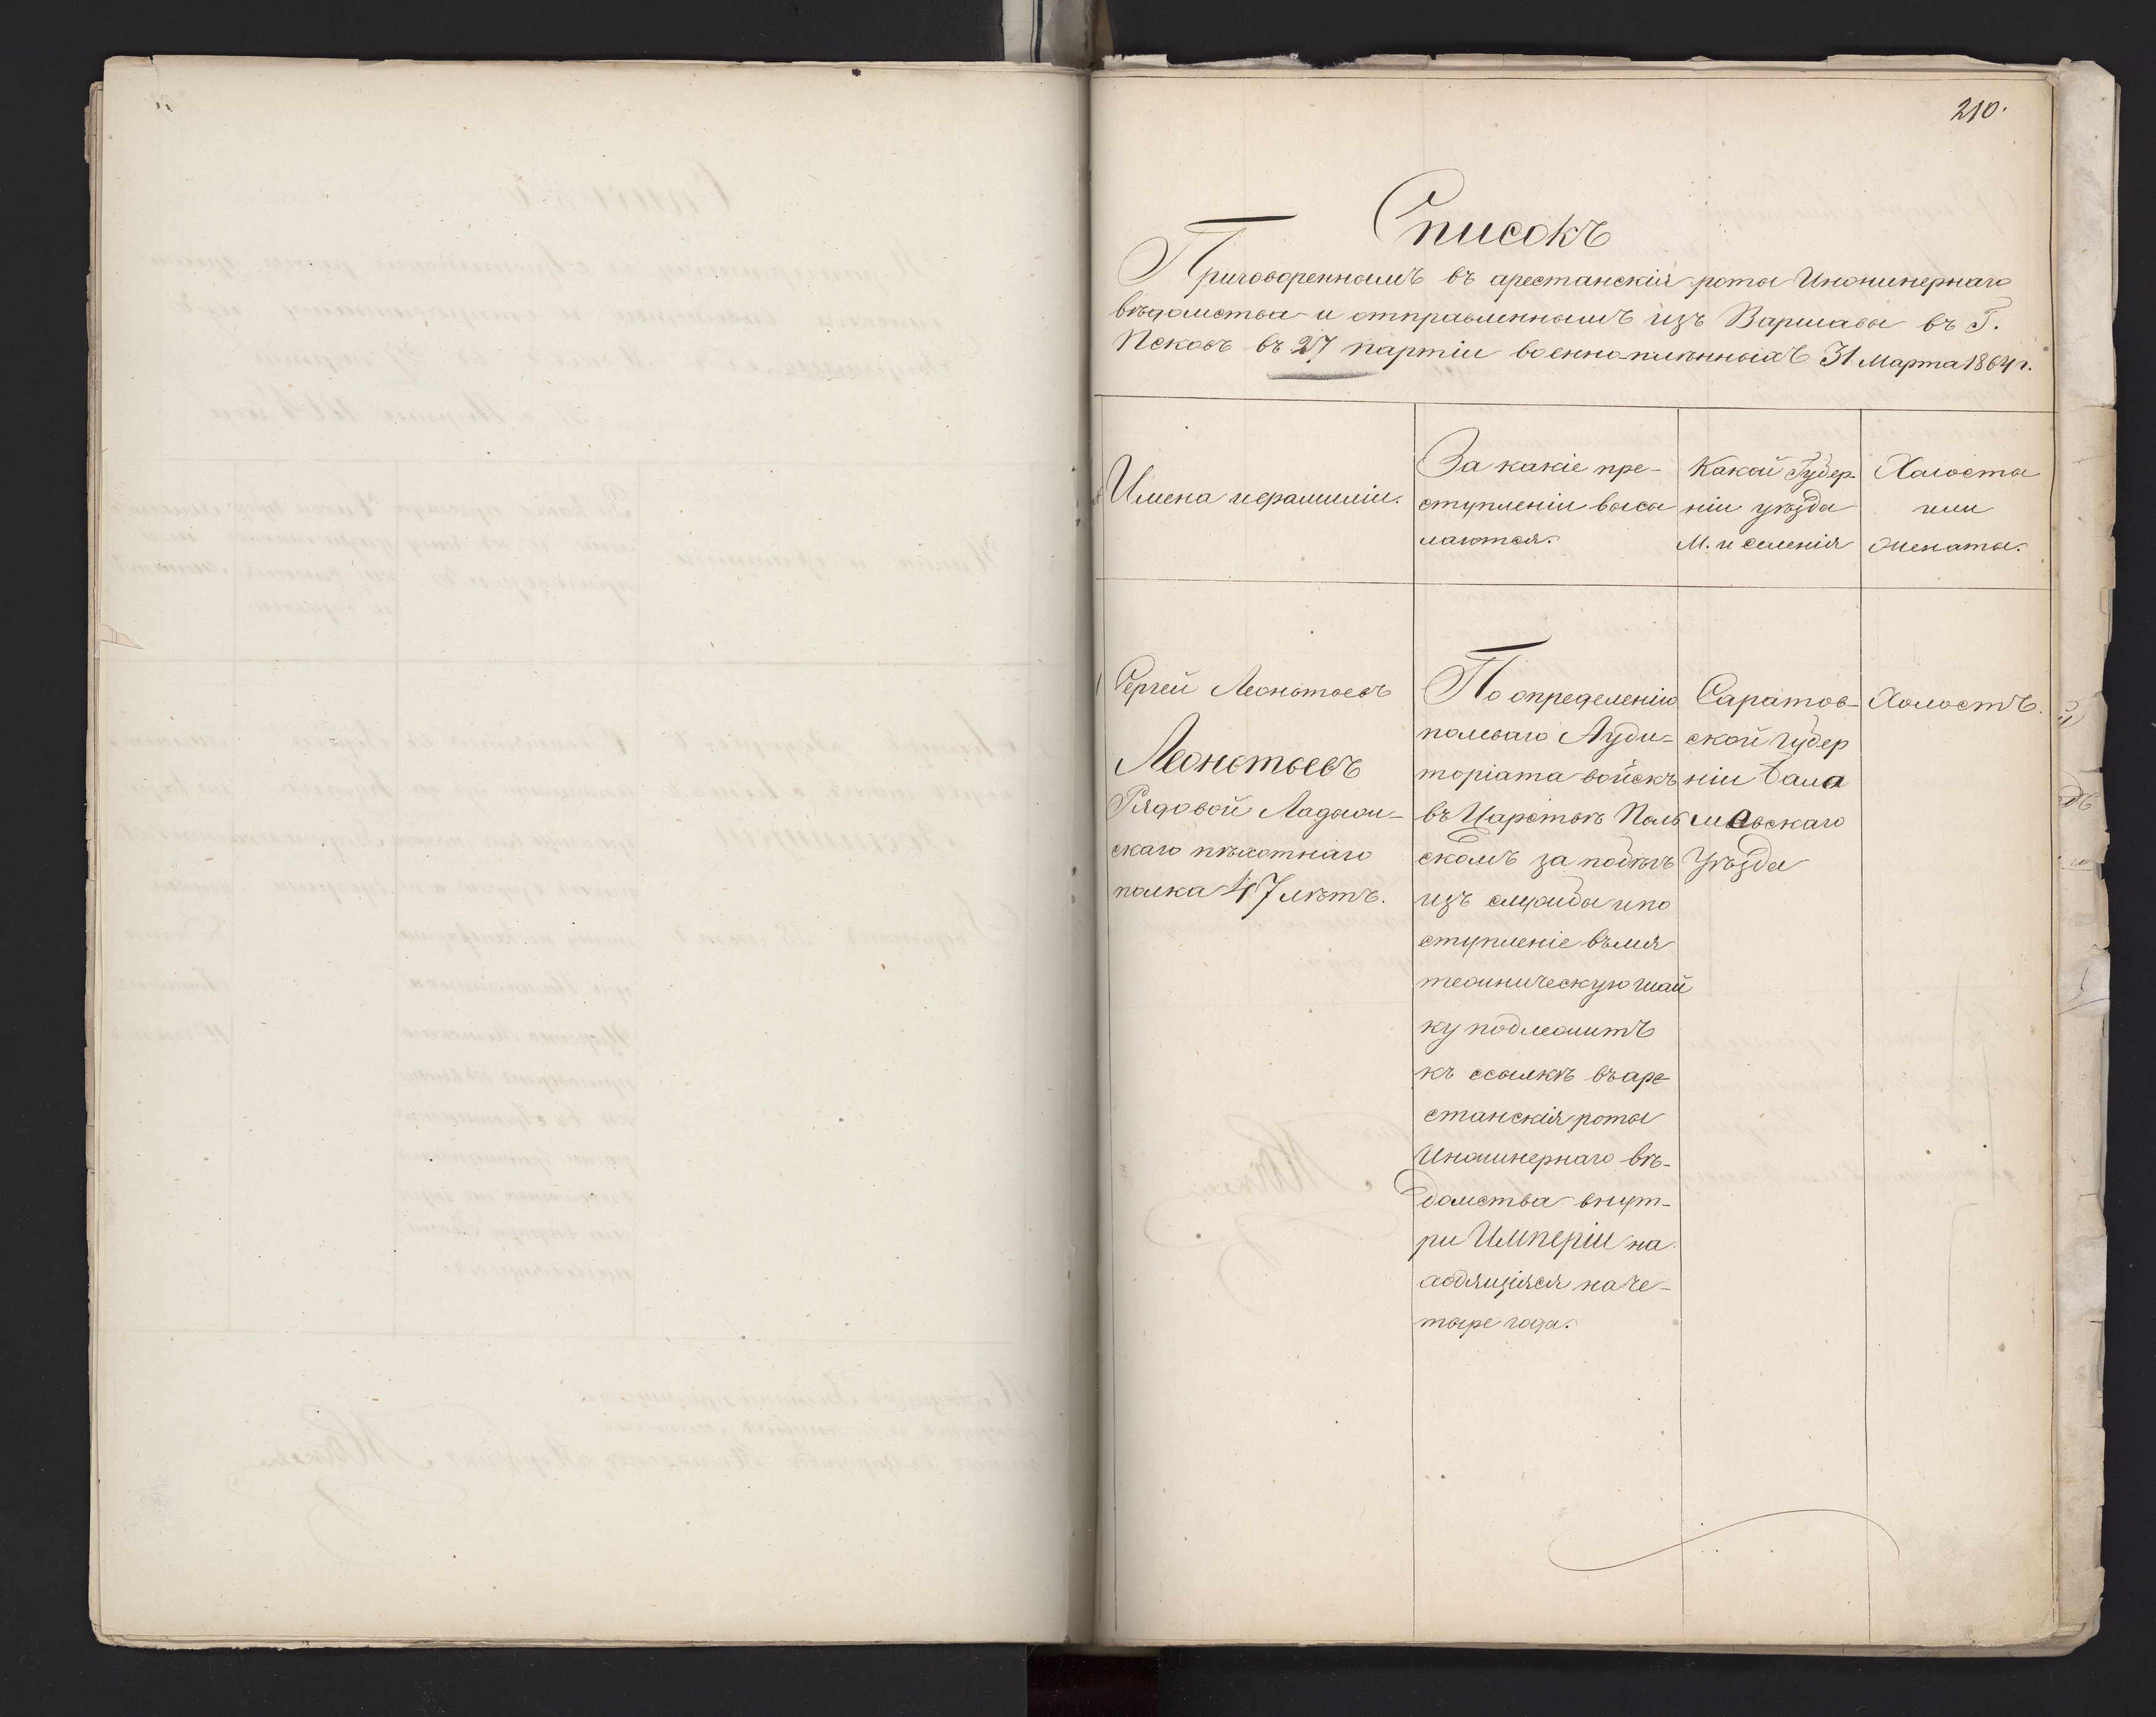 210.
Списокъ
Приговореннымъ въ арестанскія роты Инжинернаго
вѣдомства и отправленнымъ изъ Варшавы въ Г.
Псковъ въ 27 партіи военно-плѣнныхъ 31 Марта 1864 г.
Имена и фамиліи.
За какіе пре-
ступленіи высы
лаются.
Какой Губер-
ніи уѣзда
М. и селенія
Холосты
или
женаты.
1
Сергей Леонтьевъ
Леонтьевъ
Рядовой Ладож-
скаго пѣхотнаго
полка 47 лѣтъ.
По опредѣленію
полеваго Ауди-
торіата войскъ
въ Царствѣ Поль
скомъ за побѣгъ
изъ службы и по
ступленіе въ мя
тежническую шай
ку подлежитъ
къ ссылкѣ въ аре-
станскія роты
Инжинернаго вѣ-
домства внут-
ри Имперіи на
ходящіяся на че-
тыре года.
Саратов-
ской губер
ніи Бала
шовскаго
Уѣзда
Холостъ.